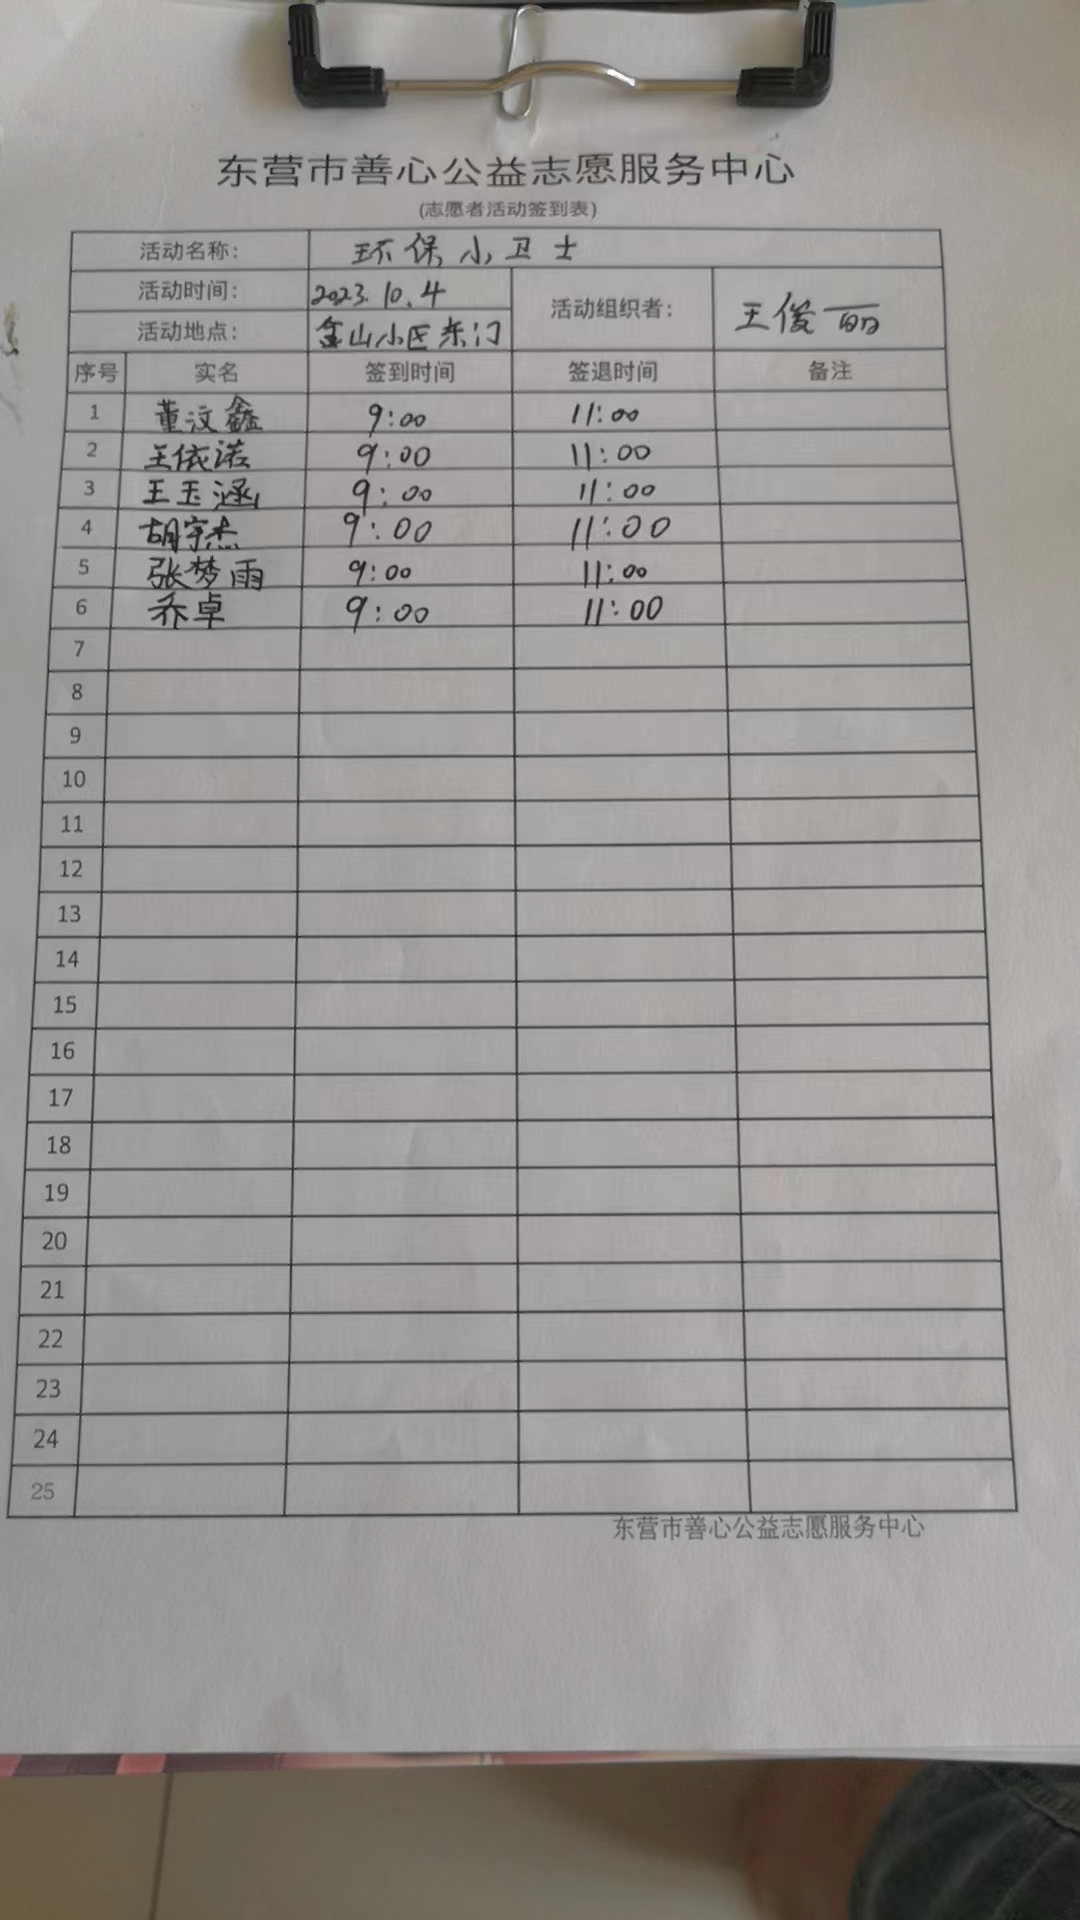 东营市善心公益志愿服务中心
(志愿者活动签到表)
活动名称： 环保小卫士
活动时间： 2023.10.4 活动组织者： 王俊丽
活动地点： 金山小区东门
序号 实名 签到时间 签退时间 备注
1 董汶鑫 9:00 11:00
2 王依诺 9:00 11:00
3 王玉涵 9:00 11:00
4 胡宇杰 9:00 11:00
5 张梦雨 9:00 11:00
6 乔卓 9:00 11:00
7
8
9
10
11
12
13
14
15
16
17
18
19
20
21
22
23
24
25
东营市善心公益志愿服务中心